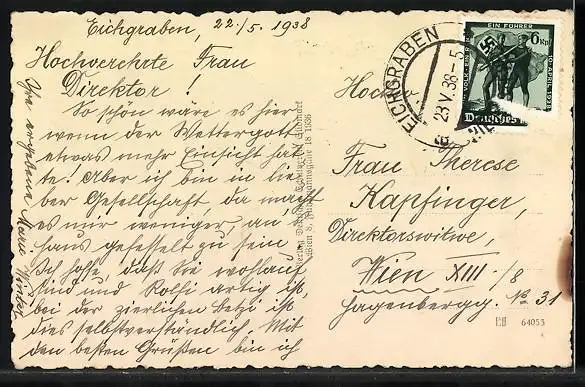 Eichgraben, 22./5. 1938
Hochverehrte Frau
Direktor!
So schön wäre es hier
wenn der Wettergott
etwas mehr Einsicht hät
te! Aber ich bin in lie
ber Gesellschaft, da macht
es mir weniger, an's
Haus gefesselt zu sein.
Ich hoffe, daß Sie wohlauf
sind und Rolfi artig ist,
bei der zierlichen Betzi ist
dies selbstverständlich. Mit
den besten Grüßen bin ich
Ihre ergebene Marie
Wien 8, 18 1936
EICHGRABEN
23.V.38
EIN VOLK EIN REICH EIN FÜHRER
10. APRIL 1938
6 Rpf
Deutsches
Hoch
Frau Therese
Kapfinger,
Direktorswitwe,
Wien XIII/8
Hagenbergg. No 31
64053